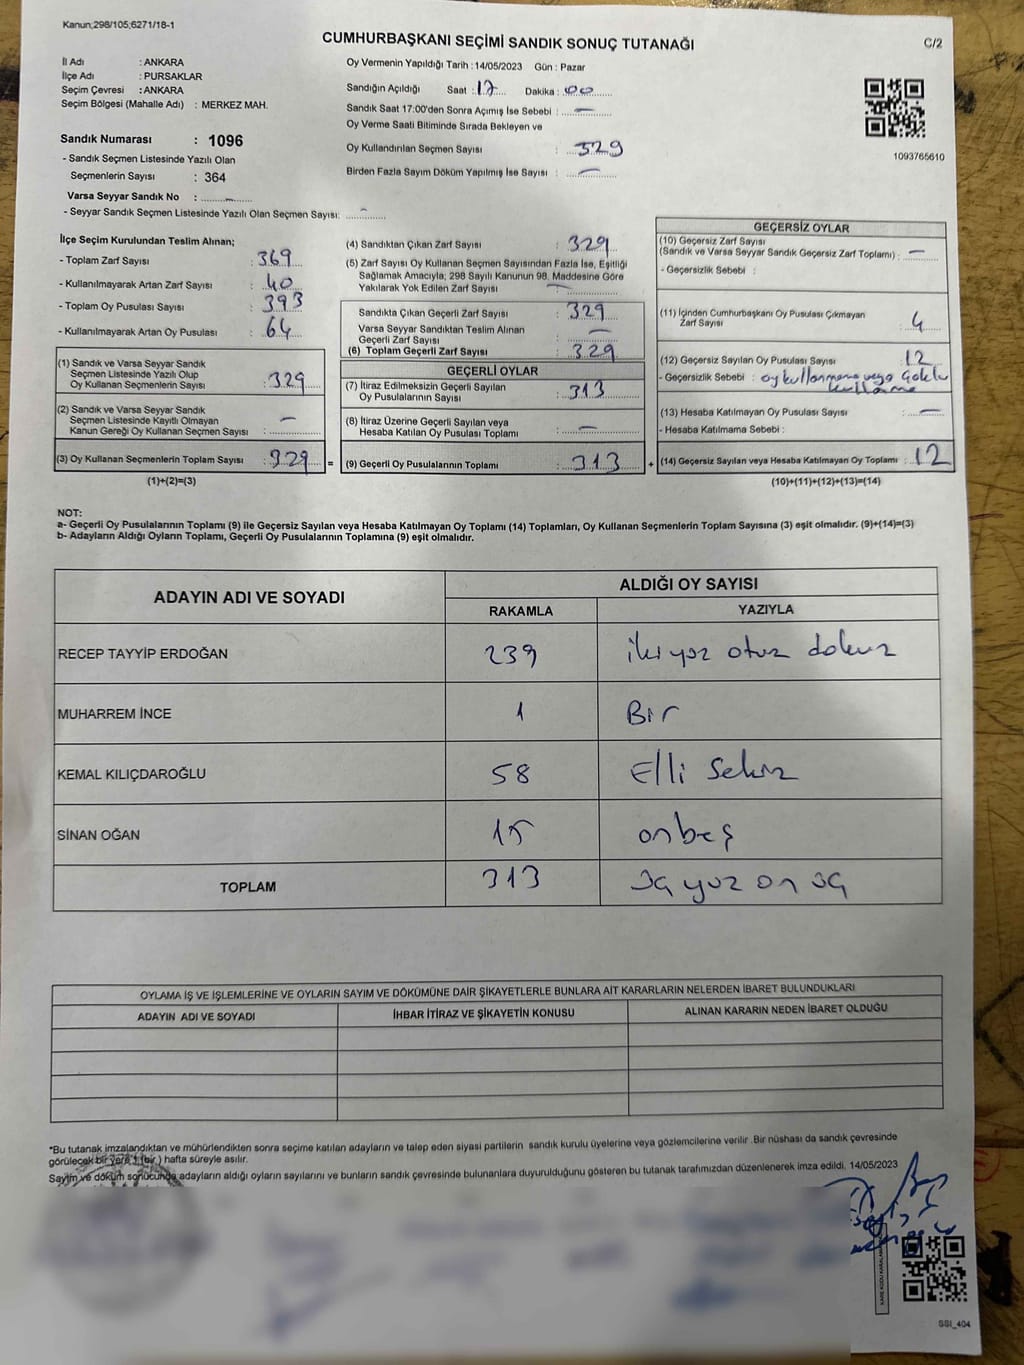 Kanun;298/105;6271/18-1
CUMHURBAŞKANI SEÇİMİ SANDIK SONUÇ TUTANAĞI
C/2
İl Adı : ANKARA
İlçe Adı : PURSAKLAR
Seçim Çevresi : ANKARA
Seçim Bölgesi (Mahalle Adı) : MERKEZ MAH.
Sandık Numarası : 1096
- Sandık Seçmen Listesinde Yazılı Olan
Seçmenlerin Sayısı : 364
Varsa Seyyar Sandık No :
- Seyyar Sandık Seçmen Listesinde Yazılı Olan Seçmen Sayısı: -
Oy Vermenin Yapıldığı Tarih : 14/05/2023 Gün : Pazar
Sandığın Açıldığı Saat : 17 Dakika : 00
Sandık Saat 17:00'den Sonra Açımış İse Sebebi : -
Oy Verme Saati Bitiminde Sırada Bekleyen ve
Oy Kullandırılan Seçmen Sayısı : 329
Birden Fazla Sayım Döküm Yapılmış İse Sayısı : -
1093765610
İlçe Seçim Kurulundan Teslim Alınan;
- Toplam Zarf Sayısı : 369
- Kullanılmayarak Artan Zarf Sayısı : 40
- Toplam Oy Pusulası Sayısı : 393
- Kullanılmayarak Artan Oy Pusulası : 64
(1) Sandık ve Varsa Seyyar Sandık
Seçmen Listesinde Yazılı Olup
Oy Kullanan Seçmenlerin Sayısı : 329
(2) Sandık ve Varsa Seyyar Sandık
Seçmen Listesinde Kayıtlı Olmayan
Kanun Gereği Oy Kullanan Seçmen Sayısı : -
(3) Oy Kullanan Seçmenlerin Toplam Sayısı : 329 =
(1)+(2)=(3)
(4) Sandıktan Çıkan Zarf Sayısı : 329
(5) Zarf Sayısı Oy Kullanan Seçmen Sayısından Fazla İse, Eşitliği
Sağlamak Amacıyla; 298 Sayılı Kanunun 98. Maddesine Göre
Yakılarak Yok Edilen Zarf Sayısı : -
Sandıkta Çıkan Geçerli Zarf Sayısı : 329
Varsa Seyyar Sandıktan Teslim Alınan
Geçerli Zarf Sayısı : -
(6) Toplam Geçerli Zarf Sayısı : 329
GEÇERLİ OYLAR
(7) İtiraz Edilmeksizin Geçerli Sayılan
Oy Pusulalarının Sayısı : 313
(8) İtiraz Üzerine Geçerli Sayılan veya
Hesaba Katılan Oy Pusulası Toplamı : -
(9) Geçerli Oy Pusulalarının Toplamı : 313 +
GEÇERSİZ OYLAR
(10) Geçersiz Zarf Sayısı
(Sandık ve Varsa Seyyar Sandık Geçersiz Zarf Toplamı) : -
- Geçersizlik Sebebi :
(11) İçinden Cumhurbaşkanı Oy Pusulası Çıkmayan
Zarf Sayısı : 4
(12) Geçersiz Sayılan Oy Pusulası Sayısı : 12
- Geçersizlik Sebebi : oy kullanmama veya Çoklu
kullanma
(13) Hesaba Katılmayan Oy Pusulası Sayısı : -
- Hesaba Katılmama Sebebi :
(14) Geçersiz Sayılan veya Hesaba Katılmayan Oy Toplamı : 12
(10)+(11)+(12)+(13)=(14)
NOT:
a- Geçerli Oy Pusulalarının Toplamı (9) ile Geçersiz Sayılan veya Hesaba Katılmayan Oy Toplamı (14) Toplamları, Oy Kullanan Seçmenlerin Toplam Sayısına (3) eşit olmalıdır. (9)+(14)=(3)
b- Adayların Aldığı Oyların Toplamı, Geçerli Oy Pusulalarının Toplamına (9) eşit olmalıdır.
ADAYIN ADI VE SOYADI ALDIĞI OY SAYISI
RAKAMLA YAZIYLA
RECEP TAYYİP ERDOĞAN 239 iki yüz otuz dokuz
MUHARREM İNCE 1 Bir
KEMAL KILIÇDAROĞLU 58 Elli Sekiz
SİNAN OĞAN 15 onbeş
TOPLAM 313 üç yüz on üç
OYLAMA İŞ VE İŞLEMLERİNE VE OYLARIN SAYIM VE DÖKÜMÜNE DAİR ŞİKAYETLERLE BUNLARA AİT KARARLARIN NELERDEN İBARET BULUNDUKLARI
ADAYIN ADI VE SOYADI İHBAR İTİRAZ VE ŞİKAYETİN KONUSU ALINAN KARARIN NEDEN İBARET OLDUĞU
*Bu tutanak imzalandıktan ve mühürlendikten sonra seçime katılan adayların ve talep eden siyasi partilerin sandık kurulu üyelerine veya gözlemcilerine verilir .Bir nüshası da sandık çevresinde
görülecek bir yere 1 (bir ) hafta süreyle asılır.
Sayım ve döküm sonucunda adayların aldığı oyların sayılarını ve bunların sandık çevresinde bulunanlara duyurulduğunu gösteren bu tutanak tarafımızdan düzenlenerek imza edildi. 14/05/2023
SSI_404